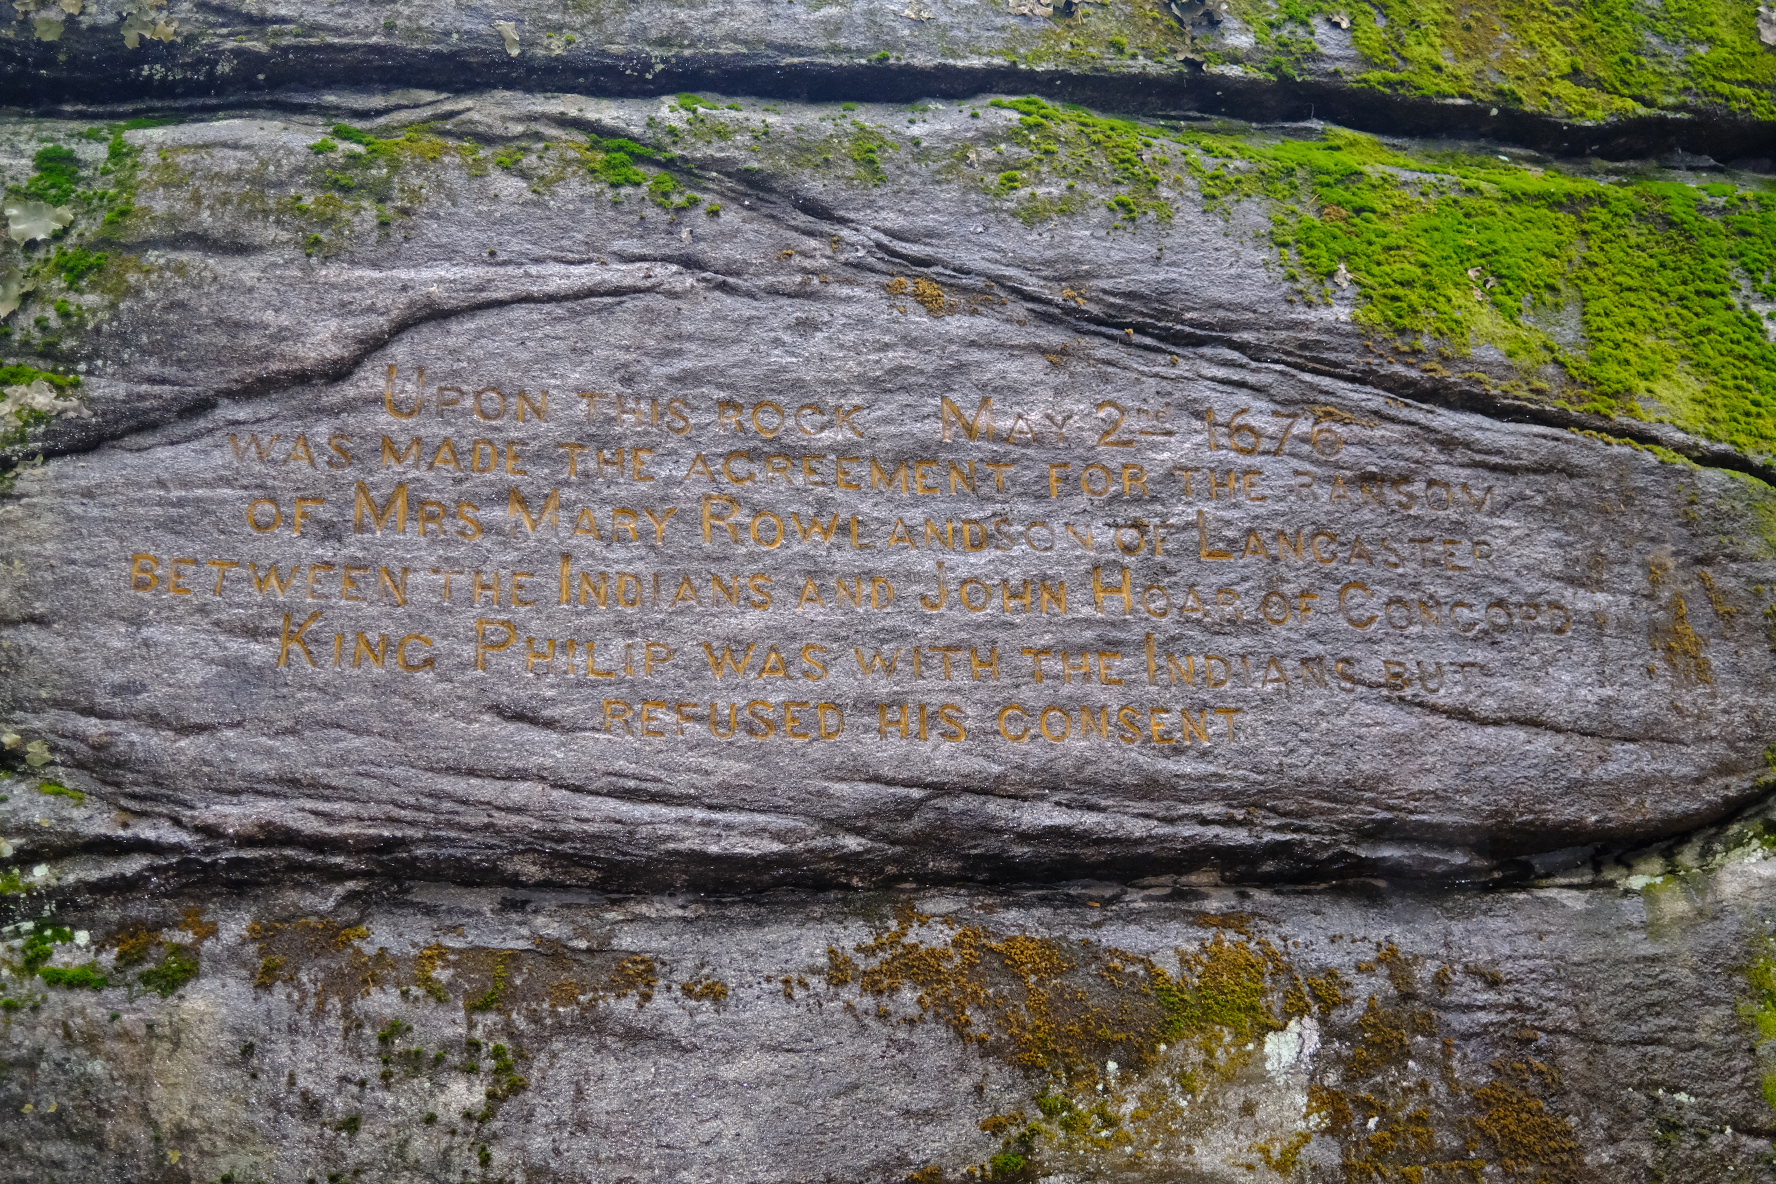 UPON THIS ROCK MAY 2ND 1676
WAS MADE THE AGREEMENT FOR THE RANSOM
OF MRS MARY ROWLANDSON OF LANCASTER
BETWEEN THE INDIANS AND JOHN HOAR OF CONCORD
KING PHILIP WAS WITH THE INDIANS BUT
REFUSED HIS CONSENT